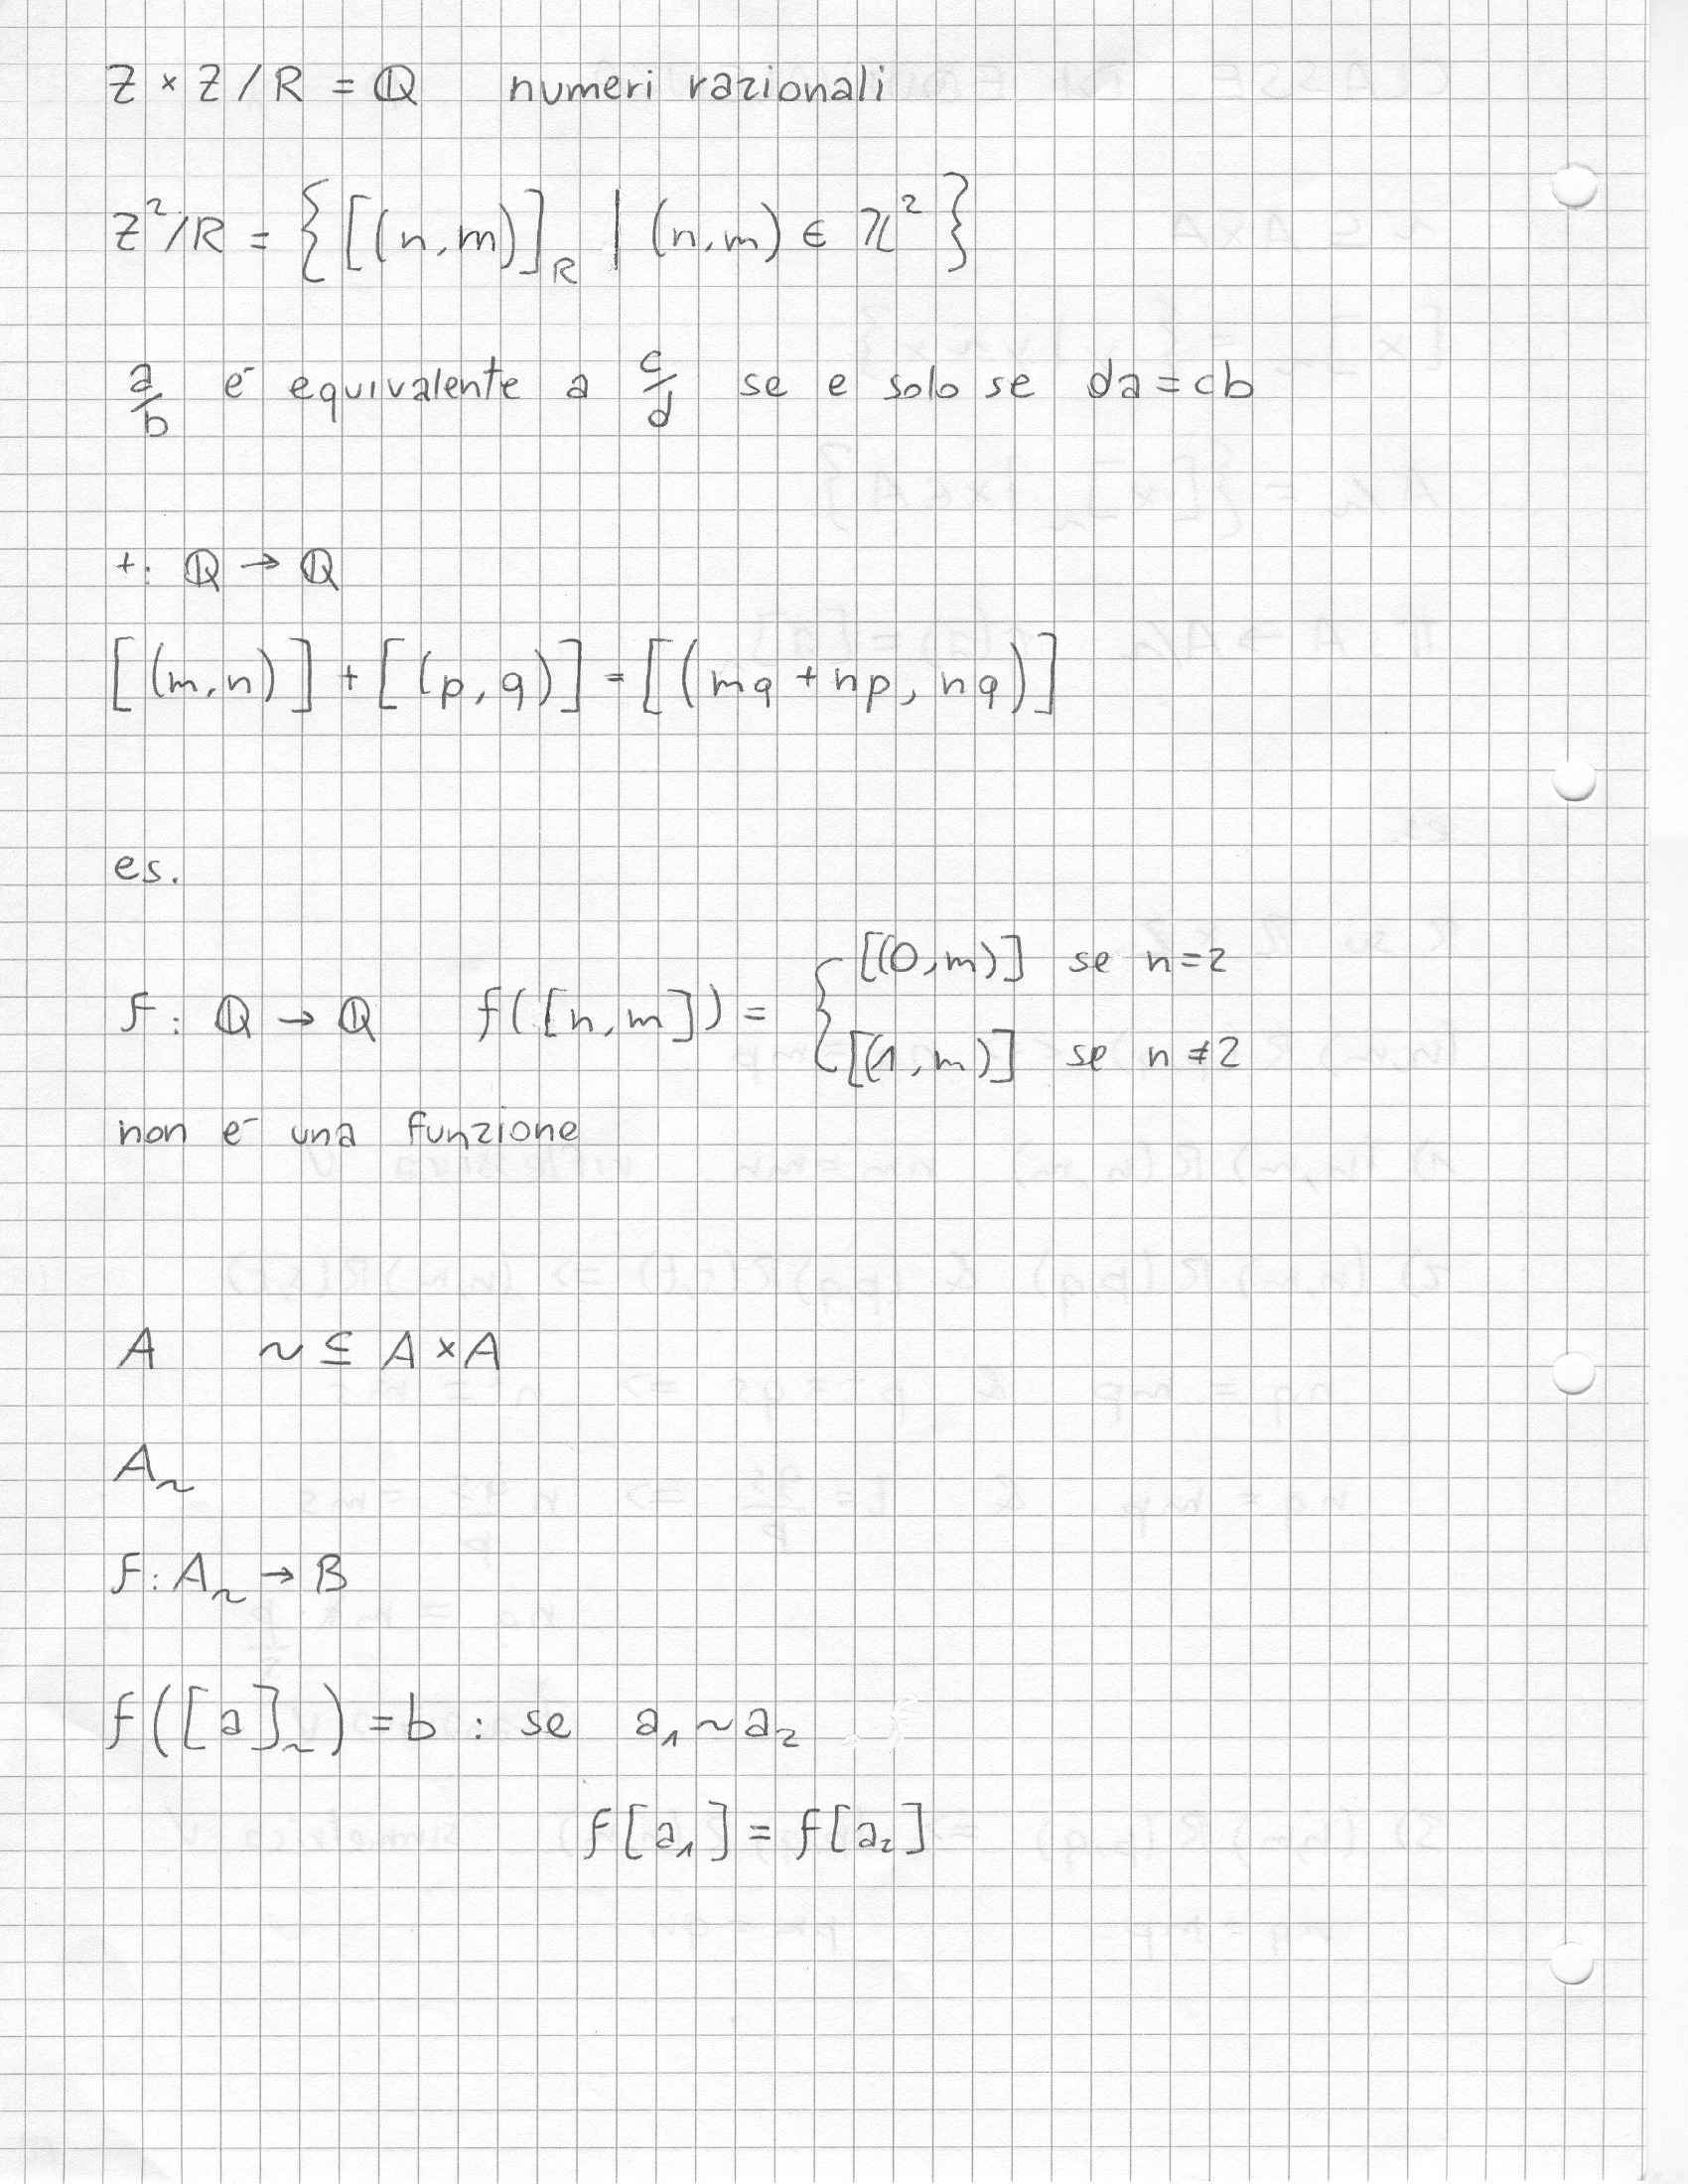 Z × Z / R = ℚ numeri razionali
Z²/R = { [(n,m)]_R | (n,m) ∈ ℤ² }
a/b é equivalente a c/d se e solo se da = cb
+: ℚ → ℚ
[(m,n)] + [(p,q)] = [(mq + np, nq)]
es.
f: ℚ → ℚ f([n,m]) = { [(0,m)] se n=2
[(1,m)] se n≠2
non é una funzione
A ~ ⊆ A × A
A~
f: A~ → B
f([a]~) = b : se a₁ ~ a₂
f[a₁] = f[a₂]